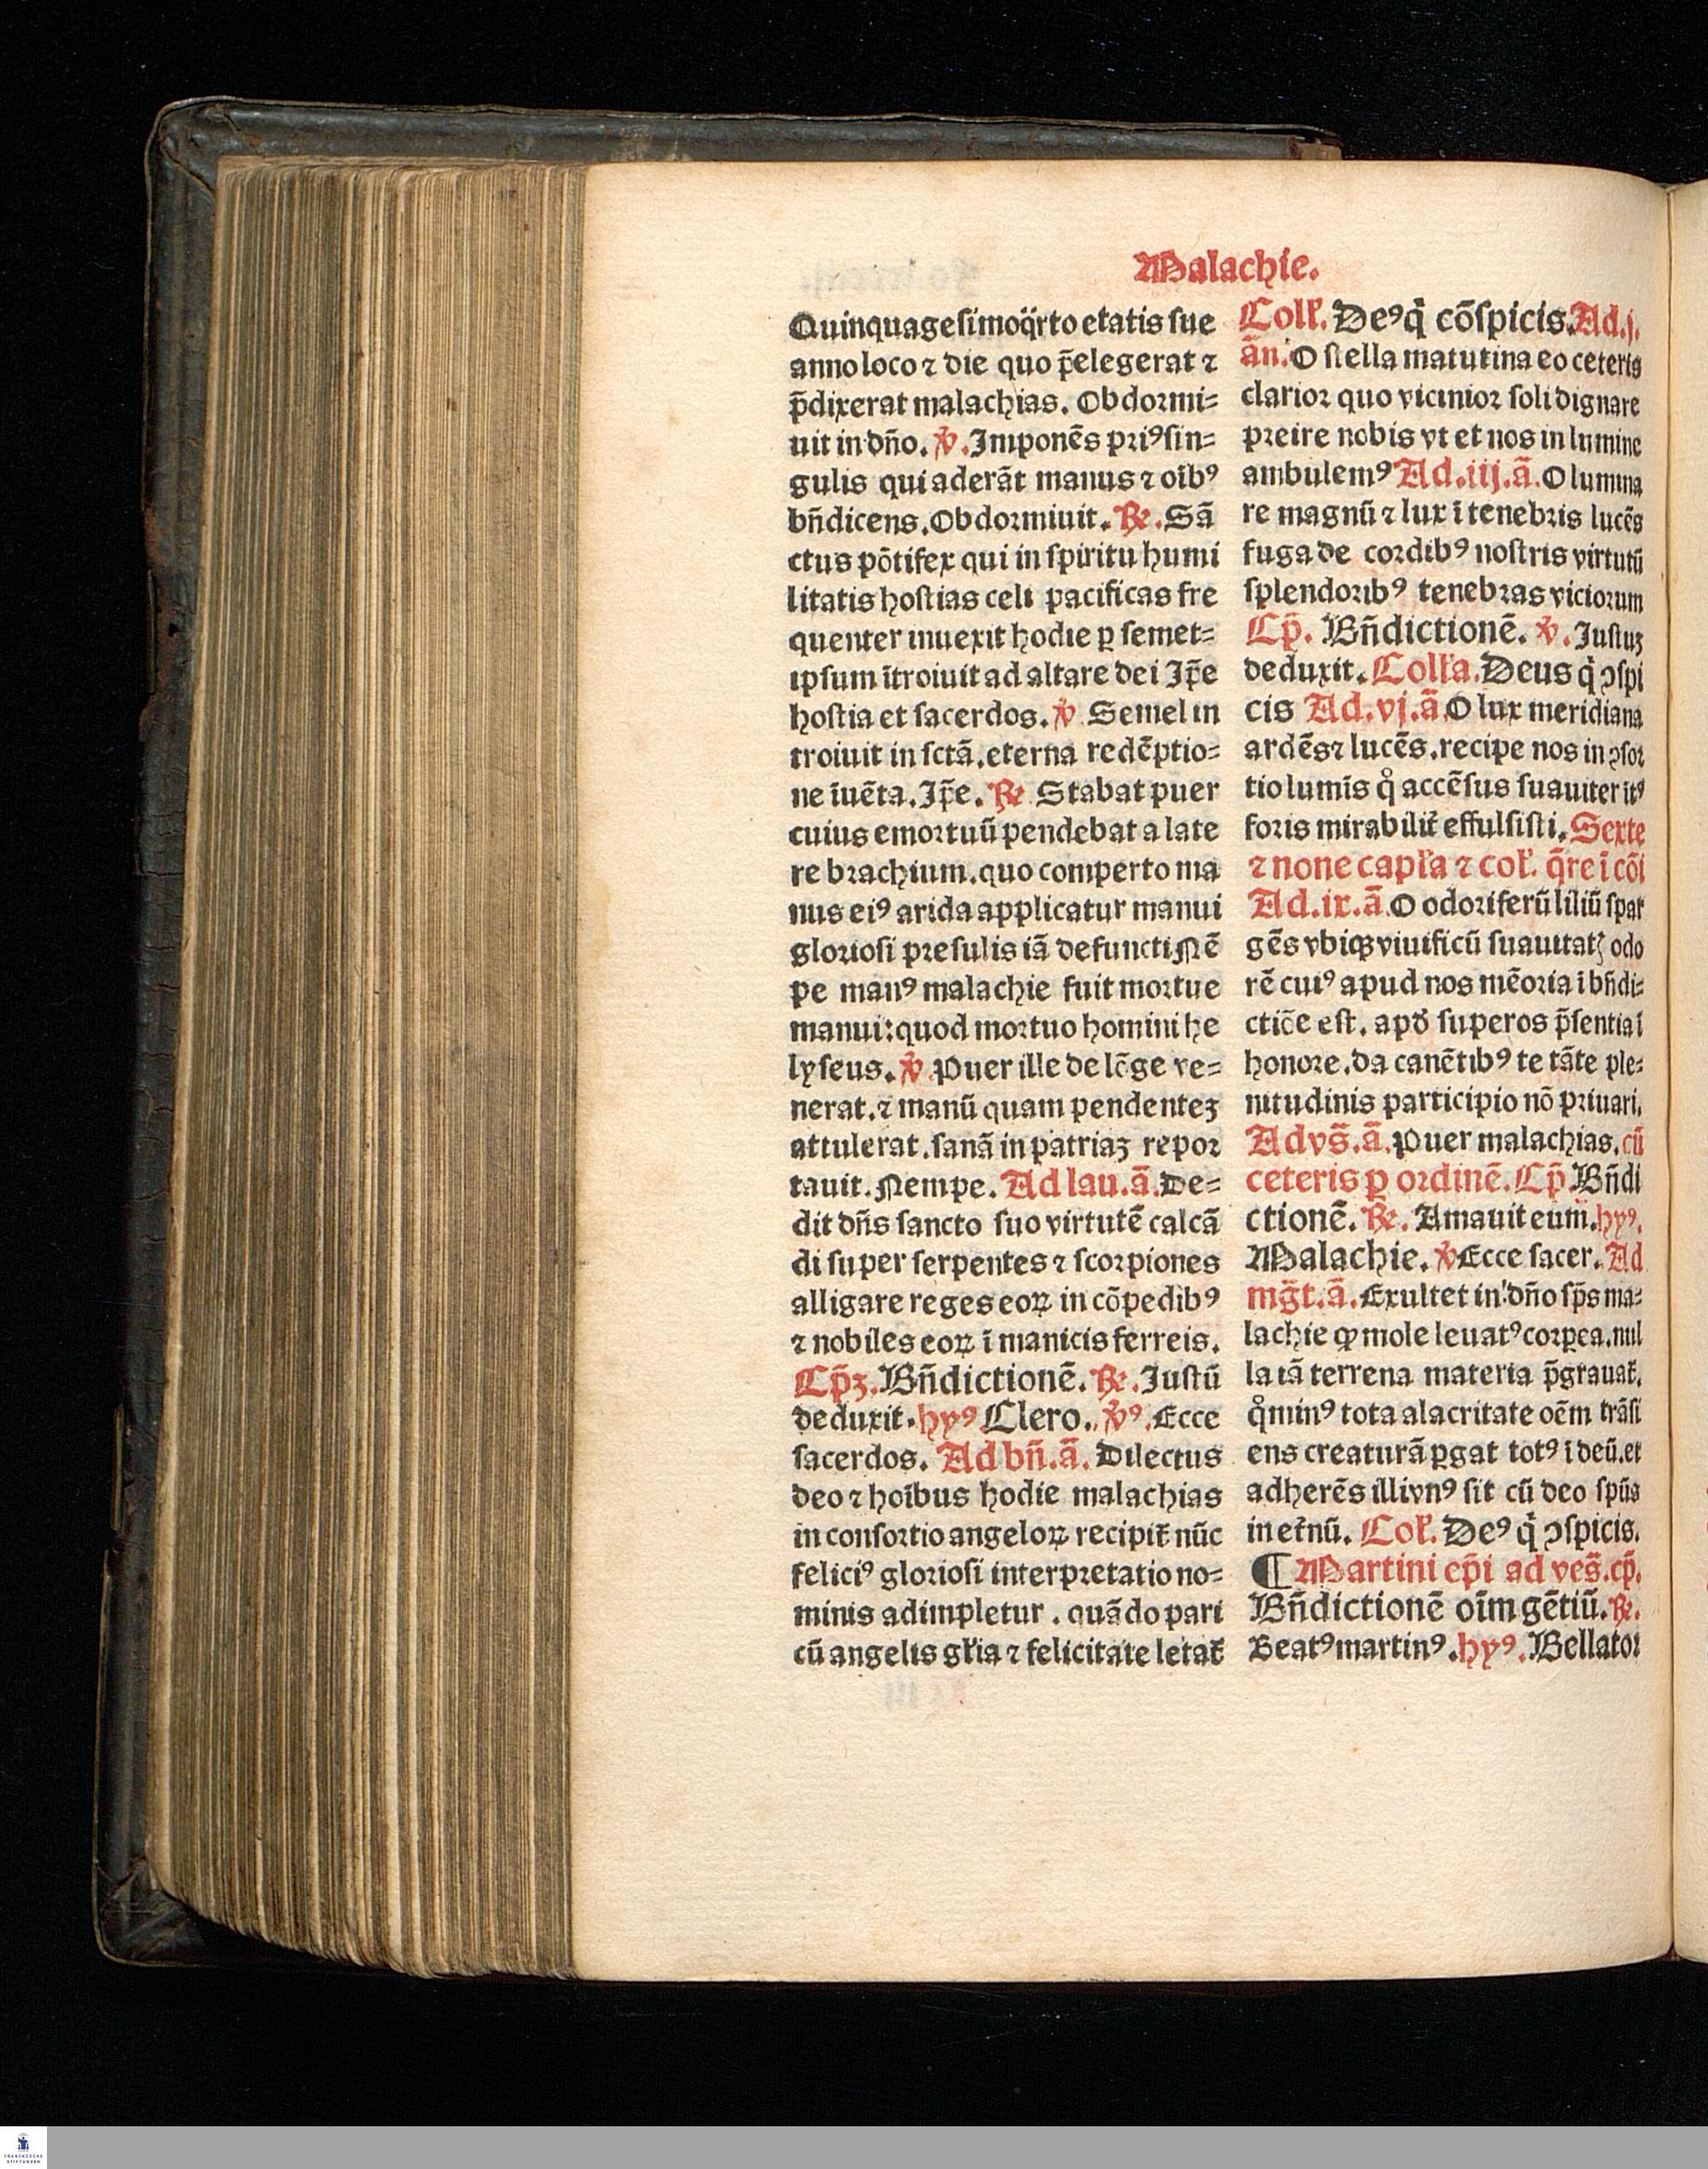 Malachie.
Quinquagesimoq̈rto etatis sue
anno loco ⁊ die quo p̄elegerat ⁊
p̄dixerat malachias. Obdormi⸗
uit in dn̄o. ℣. Imponēs priꝰ sin⸗
gulis qui aderāt manus ⁊ oīb⁹
bn̄dicens. Obdormiuit. ℞. Sā
ctus pōtifex qui in spiritu humi
litatis hostias celi pacificas fre
quenter inuexit hodie ꝑ semet⸗
ipsum ītroiuit ad altare dei Ip̄e
hostia et sacerdos. ℣ Semel in
troiuit in sctā. eterna redēptio⸗
ne īuēta. Ip̄e. ℞ Stabat puer
cuius emortuū pendebat a late
re brachium. quo comperto ma
nus eiꝰ arida applicatur manui
gloriosi presulis iā defuncti Nē
pe manꝰ malachie fuit mortue
manui: quod mortuo homini he
lyseus. ℣. Puer ille de lōge ve⸗
nerat. ⁊ manū quam pendenteꝫ
attulerat. sanā in patriaꝫ repor
tauit. Nempe. Ad lau. ā. De⸗
dit dn̄s sancto suo virtutē calcā
di super serpentes ⁊ scorpiones
alligare reges eoꝝ in cōpedibꝰ
⁊ nobiles eoꝝ ī manicis ferreis.
Cp̄ꝫ. Bn̄dictionē. ℞. Iustū
deduxit. hyꝰ Clero. ℣ꝰ. Ecce
sacerdos. Ad bn̄. ā. Dilectus
deo ⁊ hoībus hodie malachias
in consortio angeloꝝ recipit̄ nūc
feliciꝰ gloriosi interpretatio no⸗
minis adimpletur. quādo pari
cū angelis gl̄ia ⁊ felicitate letat̄
Coll̄. Deꝰ q̇ cōspicis. Ad. j.
ān. O stella matutina eo ceteris
clarior quo vicinior soli dignare
preire nobis vt et nos in lumine
ambulemꝰ Ad. iij. ā. O lumina
re magnū ⁊ lux ī tenebris lucēs
fuga de cordibꝰ nostris virtutū
splendoribꝰ tenebras viciorum
Cp̄. Bn̄dictionē. ℣. Iustuꝫ
deduxit. Coll̄a. Deus q̇ ꝯspi
cis Ad. vj. ā. O lux meridiana
ardēs ⁊ lucēs. recipe nos in ꝯsor
tio lumīs q̊ accēsus suauiter ītꝰ
foris mirabilit̄ effulsisti. Sexte
⁊ none capl̄a ⁊ col̄. q̄re ī cōi
Ad. ix. ā. O odoriferū liliū spar
gēs vbiqꝫ viuificū suauitatꝭ odo
rē cuiꝰ apud nos mēoria ī bn̄di⸗
ctiōe est. apd̄ superos p̄sentia ī
honore. da canētibꝰ te tāte ple⸗
nitudinis participio nō priuari.
Ad vs̄. ā. Puer malachias. cū
ceteris ꝑ ordinē. Cp̄ Bn̄di
ctionē. ℞. Amauit eum. hyꝰ.
Malachie. ℣ Ecce sacer. Ad
mḡt. ā. Exultet in dn̄o sp̄s ma⸗
lachie ꝙ mole leuatꝰ corpea. nul
la iā terrena materia p̄grauat̄.
q̊minꝰ tota alacritate oēm trāsi
ens creaturā ꝑgat totꝰ ī deū. et
adherēs illi vnꝰ sit cū deo spūs
in et̄nū. Col̄. Deꝰ q̇ ꝯspicis.
¶ Martini ep̄i ad ves̄. cp̄.
Bn̄dictionē oīm gētiū. ℞.
Beatꝰ martinꝰ. hyꝰ. Bellator
FRANCKESCHE
STIFTUNGEN